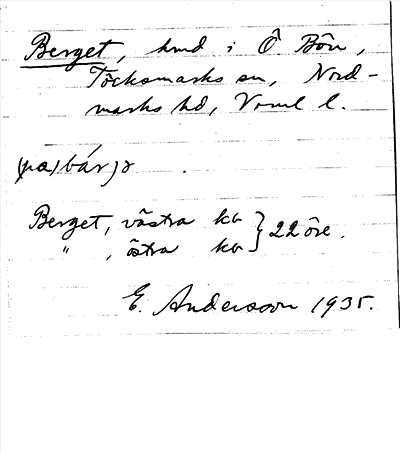 Berget, hmd i Ö. Bön,
Töcksmarks sn, Nord-
marks hd, Vrml l.
(pa) bárjə.
Berget, västra kv } 22 öre.
" , östra kv
E. Andersson 1935.